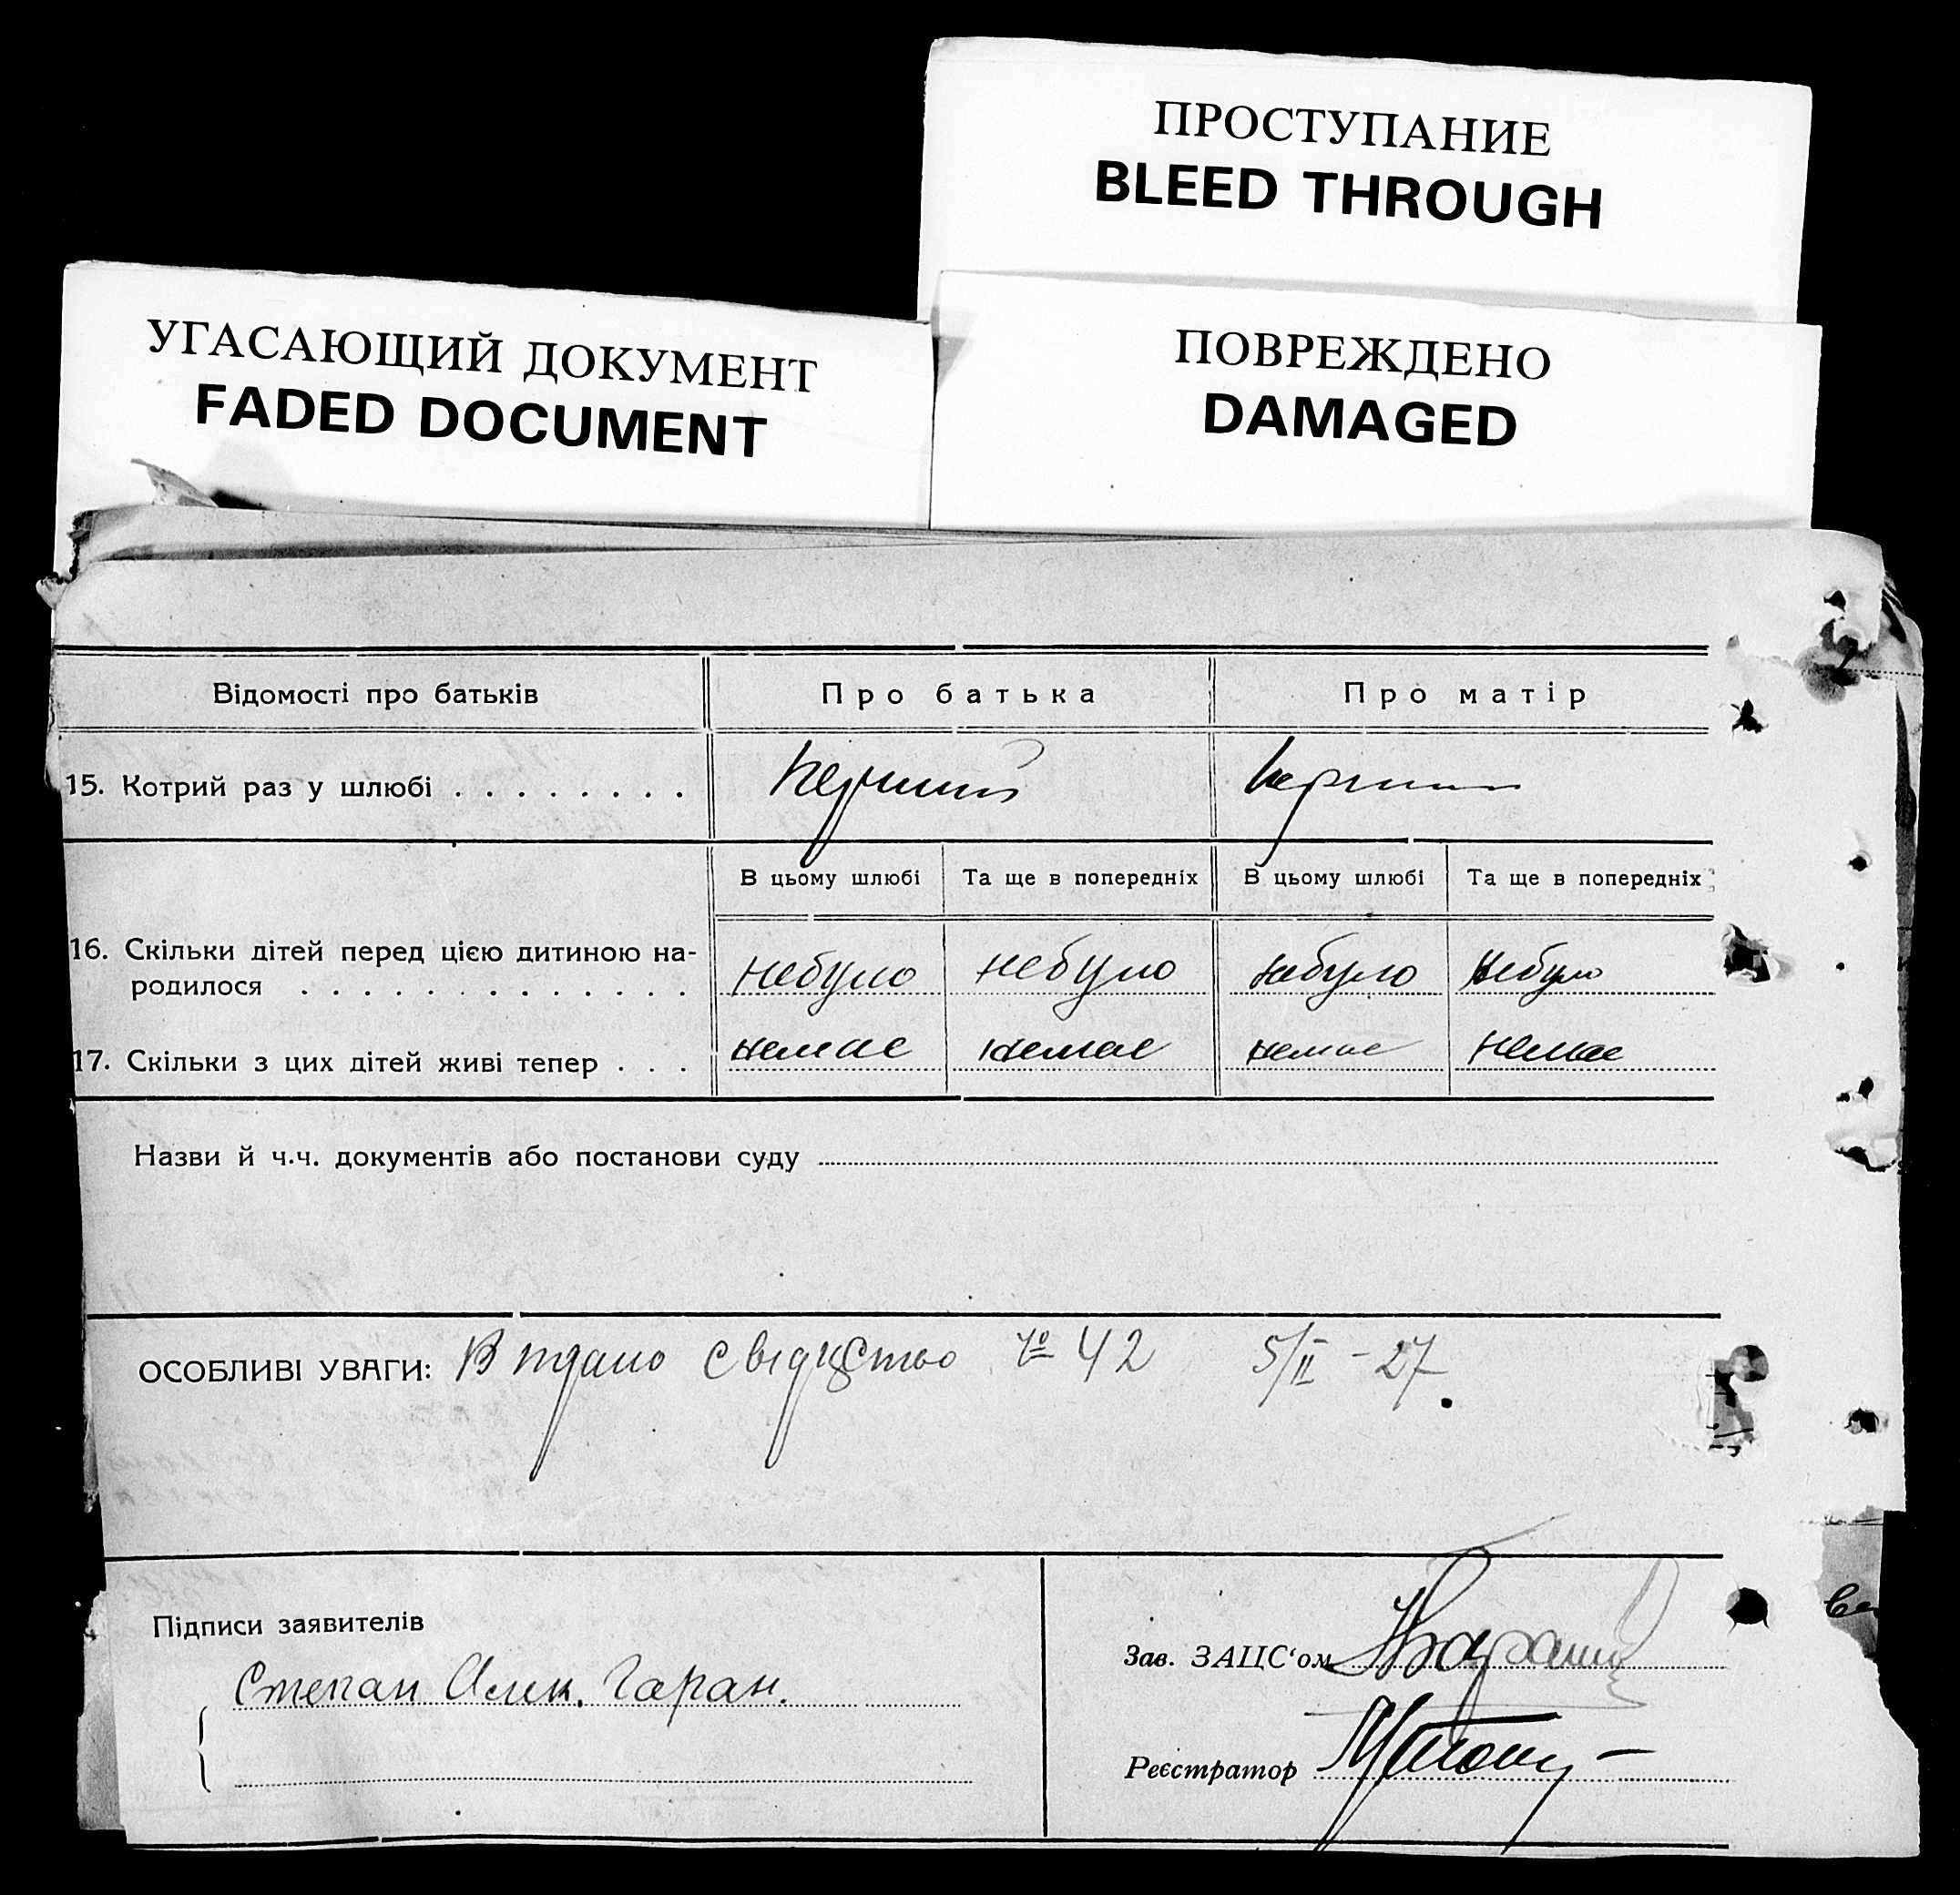 ПРОСТУПАНИЕ
BLEED THROUGH
УГАСАЮЩИЙ ДОКУМЕНТ
FADED DOCUMENT
ПОВРЕЖДЕНО
DAMAGED
Відомості про батьків Про батька Про матір
15. Котрий раз у шлюбі . . . . . . . . перший перший
В цьому шлюбі Та ще в попередніх В цьому шлюбі Та ще в попередніх
16. Скільки дітей перед цією дитиною на-
родилося . . . . . . . . . . . . . небуло небуло небуло небуло
17. Скільки з цих дітей живі тепер . . . немає немає немає немає
Назви й ч.ч. документів або постанови суду
ОСОБЛИВІ УВАГИ: № 42 5/II - 27.
Підписи заявителів
Степан Алек. Гаран.
Зав. ЗАЦС‘ом
Реєстратор